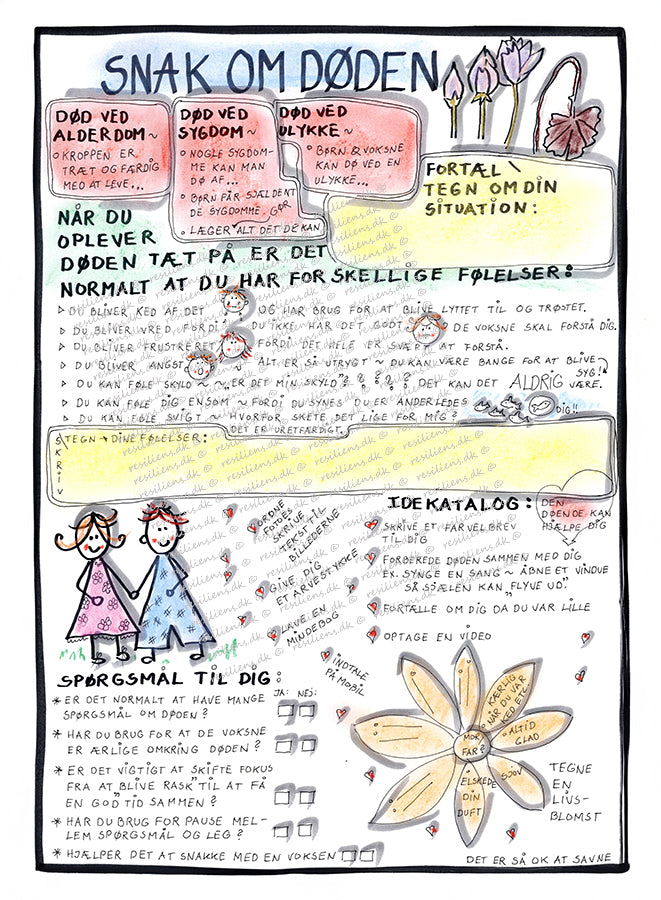 SNAK OM DØDEN
DØD VED
ALDERDOM~
KROPPEN ER
TRÆT OG FÆRDIG
MED AT LEVE...
DØD VED
SYGDOM~
NOGLE SYGDOM-
ME KAN MAN
DØ AF...
BØRN FÅR SJÆLDENT
DE SYGDOMME.
LÆGER GØR ALT DET DE KAN
DØD VED
ULYKKE~
BØRN & VOKSNE
KAN DØ VED EN
ULYKKE...
FORTÆL \
TEGN OM DIN
SITUATION:
NÅR DU
OPLEVER
DØDEN TÆT PÅ ER DET
NORMALT AT DU HAR FORSKELLIGE FØLELSER:
DU BLIVER KED AF DET OG HAR BRUG FOR AT BLIVE LYTTET TIL OG TRØSTET.
DU BLIVER VRED FORDI DU IKKE HAR DET GODT DE VOKSNE SKAL FORSTÅ DIG.
DU BLIVER FRUSTRERET FORDI DET HELE ER SVÆRT AT FORSTÅ.
DU BLIVER ANGST ALT ER SÅ UTRYGT ~ DU KAN VÆRE BANGE FOR AT BLIVE SYG!
DU KAN FØLE SKYLD ~ ~ ER DET MIN SKYLD? ? ? ? ? DET KAN DET ALDRIG VÆRE.
DU KAN FØLE DIG ENSOM ~ FORDI DU SYNES DU ER ANDERLEDES DIG!!
DU KAN FØLE SVIGT ~ HVORFOR SKETE DET LIGE FOR MIG?
DET ER URETFÆRDIGT.
SKRIV
TEGN → DINE FØLELSER:
ORDNE
FOTOES
SKRIVE
TEKST TIL
BILLEDERNE
GIVE DIG
ET ARVESTYKKE
LAVE EN
MINDEBOG
INDTALE
PÅ MOBIL
IDEKATALOG:
DEN
DØENDE KAN
HJÆLPE DIG
SKRIVE ET FARVELBREV
TIL DIG
FORBEREDE DØDEN SAMMEN MED DIG
EX. SYNGE EN SANG ~ ÅBNE ET VINDUE
SÅ SJÆLEN KAN "FLYVE UD".
FORTÆLLE OM DIG DA DU VAR LILLE
OPTAGE EN VIDEO
SPØRGSMÅL TIL DIG:
JA: NEJ:
* ER DET NORMALT AT HAVE MANGE
SPØRGSMÅL OM DØDEN?
* HAR DU BRUG FOR AT DE VOKSNE
ER ÆRLIGE OMKRING DØDEN?
* ER DET VIGTIGT AT SKIFTE FOKUS
FRA AT "BLIVE RASK" TIL AT FÅ
EN "GOD" TID SAMMEN?
* HAR DU BRUG FOR PAUSE MEL-
LEM SPØRGSMÅL OG LEG?
* HJÆLPER DET AT SNAKKE MED EN VOKSEN
KÆRLIG
NÅR DU VAR
KED ETC.
ALTID
GLAD
MOR
FAR?
SJOV
ELSKEDE
DIN
DUFT
TEGNE
EN
LIVS-
BLOMST
DET ER SÅ OK AT SAVNE
resiliens.dk ©